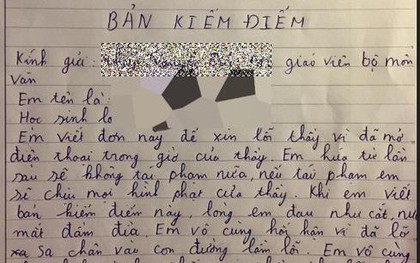 BẢN KIỂM ĐIỂM
Kính gửi: giáo viên bộ môn
văn
Em tên là:
Học sinh lớ
Em viết đơn này để xin lỗi thầy vì đã mở
điện thoại trong giờ của thầy. Em hứa từ lần
sau sẽ không tái phạm nữa, nếu tái phạm em
sẽ chịu mọi hình phạt của thầy. Khi em viết
bản kiểm điểm này, lòng em đau như cắt, nước
mắt đầm đìa. Em vô cùng hối hận vì đã lỡ
xa sa chân vào con đường lầm lỗi. Em vô cùng